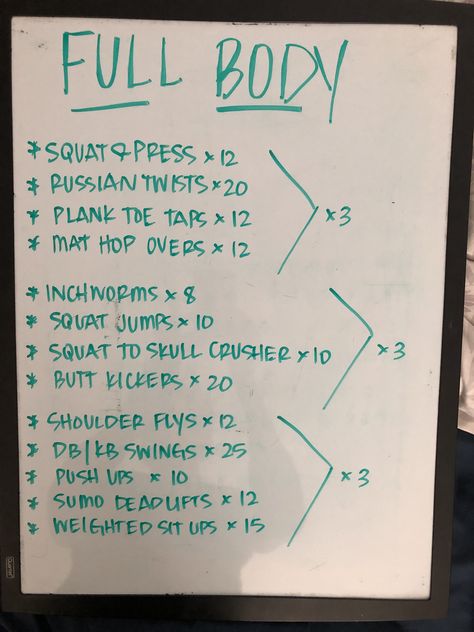 FULL BODY
* SQUAT & PRESS x 12
* RUSSIAN TWISTS x 20
* PLANK TOE TAPS x 12
* MAT HOP OVERS x 12
x 3
* INCHWORMS x 8
* SQUAT JUMPS x 10
* SQUAT TO SKULL CRUSHER x 10
* BUTT KICKERS x 20
x 3
* SHOULDER FLYS x 12
* DB/KB SWINGS x 25
* PUSH UPS x 10
* SUMO DEADLIFTS x 12
* WEIGHTED SIT UPS x 15
x 3
Quartet